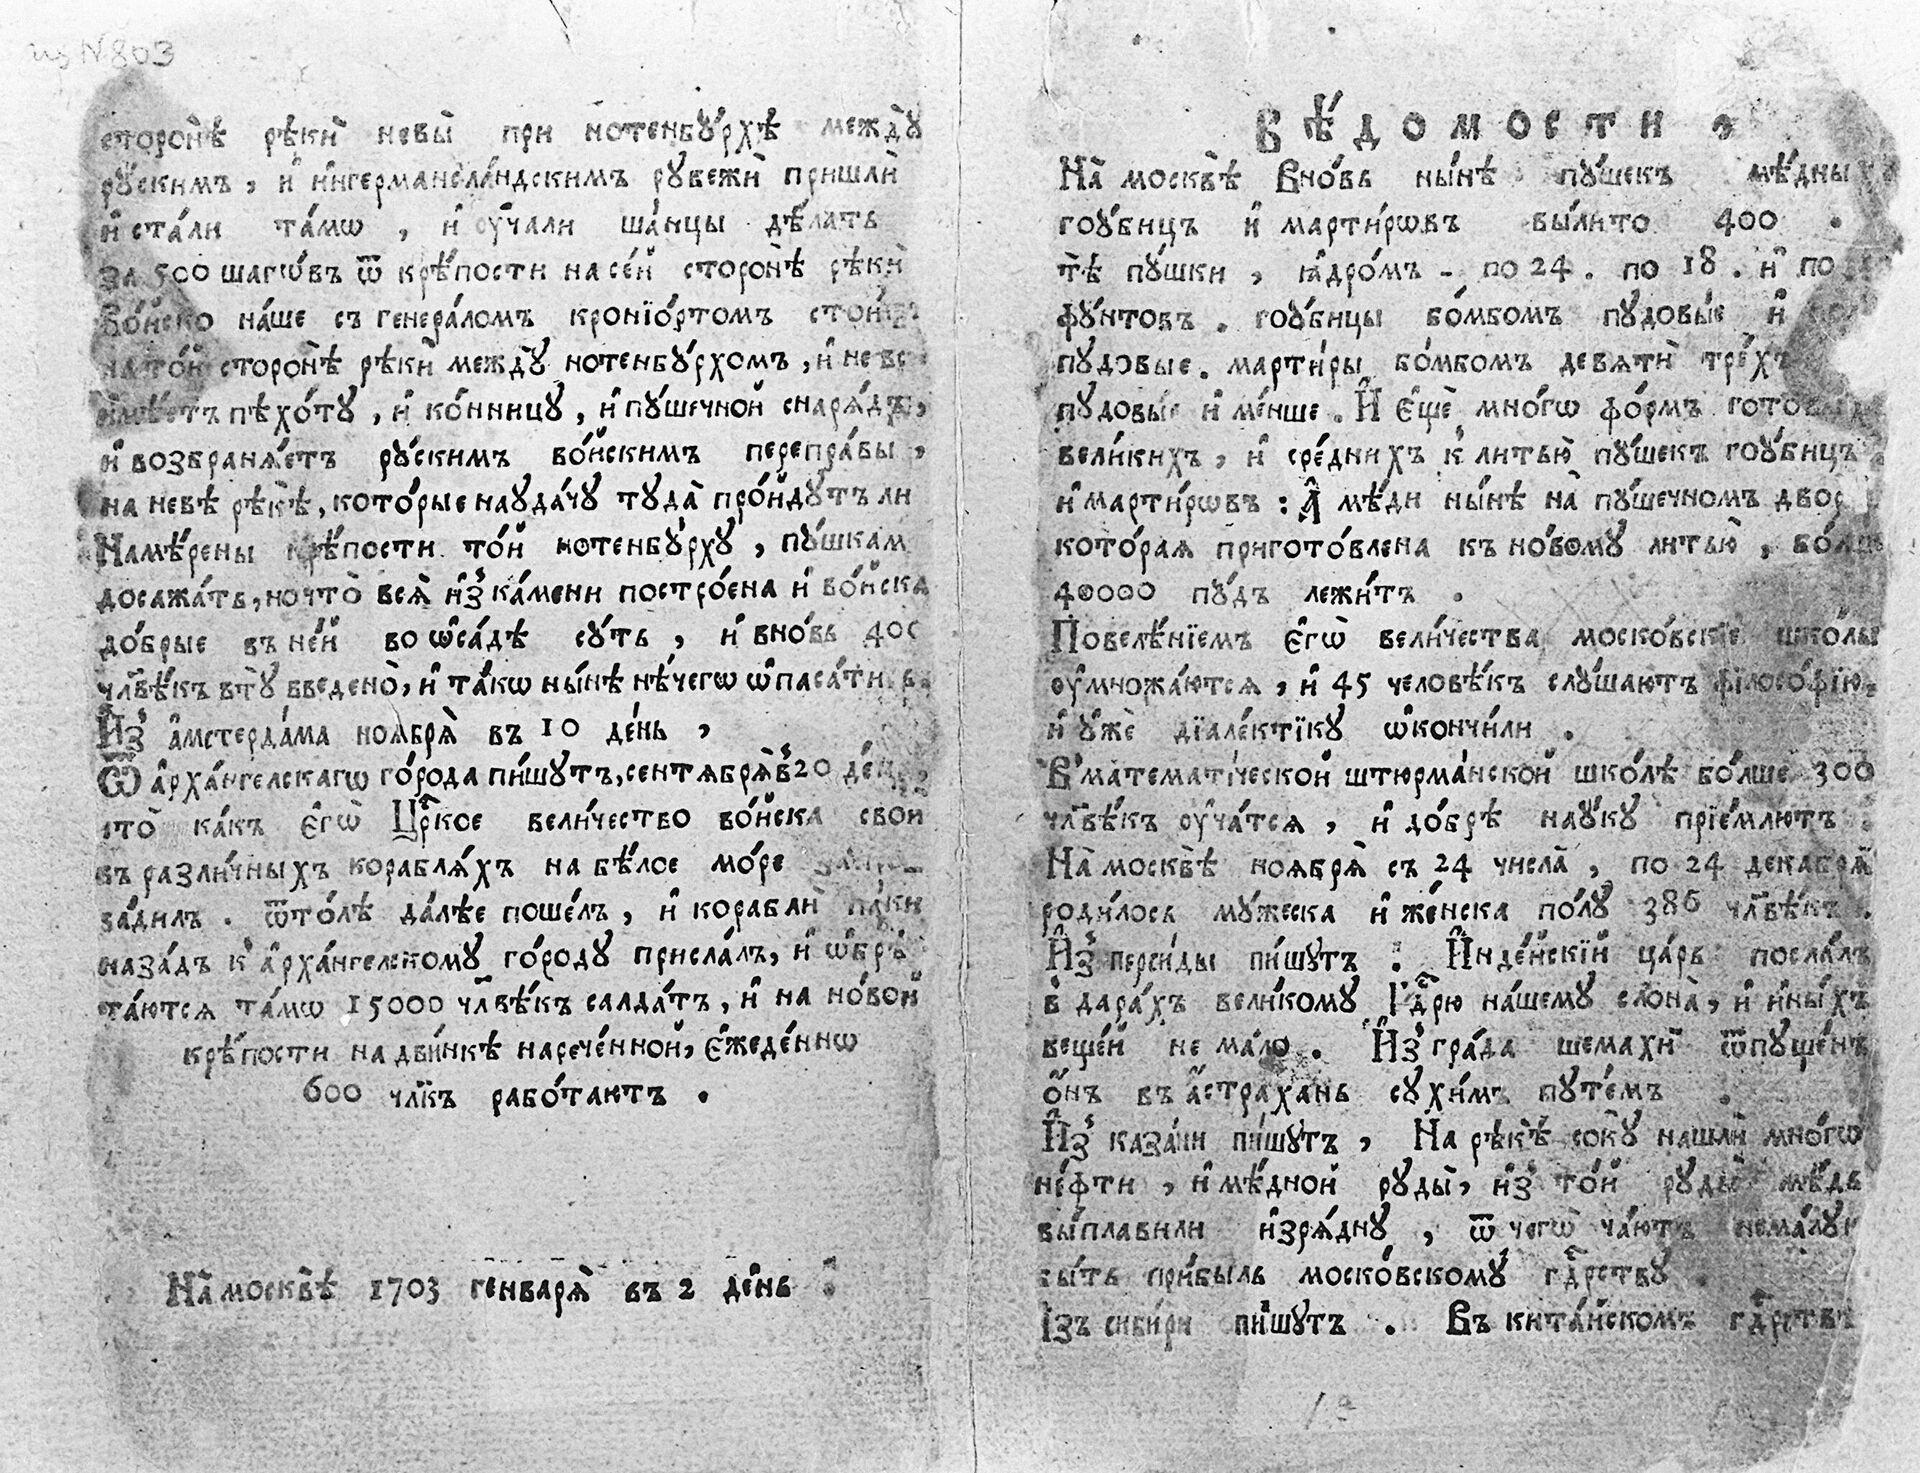 из N 803
сторонѣ̀ рѣкѝ невы̀ при нотенбꙋ́рхѣ междꙋ̀
рꙋ́скимъ, и҆ и҆нгерманела́ндскимъ рꙋбежѝ пришлѝ
и҆ ста́ли та́мѡ, и҆ ѹ҆чали ша́нцы дѣ́лать
за 500 шагѡ́въ ѿ крѣ́пости на се́й сторонѣ̀ рѣкѝ
Во́йско на́ше съ генера́ломъ кронїо́ртомъ стои́тъ
на то́й сторонѣ̀ рѣкѝ междꙋ̀ нотенбꙋ́рхомъ, и҆ не
и҆мѣ́етъ пѣхо́тꙋ, и҆ ко́нницꙋ, и҆ пꙋ́шечной снарѧ́дъ,
и҆ возбранѧ́етъ рꙋ́скимъ во́йскимъ перепра́вы,
на невѣ̀ рѣкѣ̀, кото́рые наꙋда́чꙋ тꙋда̀ про́йдꙋтъ ли
Намѣ́рены крѣ́пости то́й нотенбꙋ́рхꙋ, пꙋ́шкам
досажа́ть, но что̀ всѧ̀ и҆з̾ ка́мени постро́ена и҆ во́йска
до́брые въ не́й во ѡ҆са́дѣ сꙋ́ть, и҆ вно́вь 400
чл҃вѣ́къ втꙋ̀ введено̀, и҆ та́кѡ ны́нѣ нѣ́чегѡ ѡ҆паса́ти
И҆з̾ а҆мстерда́ма ноѧбрѧ̀ въ 10 де́нь,
Ѿ а҆рха́нгелскагѡ го́рода пи́шꙋтъ, сентѧбрѧ̀ в̾ 20 де́нь
что̀ ка́къ є҆гѡ̀ Цр҃кое вели́чество во́йска свои
въ разли́чныхъ корабля́хъ на бѣ́лое мо́ре
за́дилъ. ѿто́лѣ да́лѣе поше́лъ, и҆ кораблѝ па́ки
наза́дъ к̾ а҆рха́нгелскомꙋ го́родꙋ присла́лъ, и҆ ѡ҆брѣ
та́ются та́мѡ 15000 чл҃вѣ́къ салда́тъ, и҆ на но́вой
крѣ́пости на дви́нкѣ нарече́нной, є҆жеде́ннѡ
600 чл҃къ рабо́тают.
На̀ москвѣ̀ 1703 генварѧ̀ въ 2 де́нь
ВѢ́ДОМОСТИ,
На̀ москвѣ̀ Вно́вь ны́нѣ пꙋ́шекъ мѣ́дныхъ
гоꙋ́бицъ и҆ марти́рѡвъ вы́лито 400.
тѣ̀ пꙋ́шки, ꙗ҆дро́мъ - по 24. по 18. и҆ по
фꙋ́нтовъ. гоꙋ́бицы бо́мбомъ пꙋдовы́е и҆
пꙋдовые. марти́ры бо́мбомъ девѧтѝ тре́хъ
пꙋдовы́е и҆ ме́нше. И҆ є҆щѐ мно́гѡ фо́рмъ гото́выхъ
вели́кихъ, и҆ сре́днихъ к̾ литью̀ пꙋ́шекъ гоꙋ́бицъ
и҆ марти́рѡвъ: А҆ мѣ́ди ны́нѣ на̀ пꙋ́шечномъ двор
кото́рая пригото́влена къ но́вомꙋ литью̀, бо́лше
40000 пꙋ́дъ лежи́тъ.
Повелѣ́нїемъ є҆гѡ̀ вели́чества моско́вскїе шко́лы
ѹ҆множа́ются, и҆ 45 человѣ́къ слꙋ́шаютъ філосо́фїю,
и҆ ꙋ҆жѐ дїале́ктїкꙋ ѡ҆кончи́ли.
В̾ математі́ческой штюрма́нской шко́лѣ бо́лше 300
чл҃вѣ́къ ѹ҆ча́тся, и҆ до́брѣ наꙋ́кꙋ прїе́млютъ.
На̀ москвѣ̀ ноѧбрѧ̀ съ 24 числа̀, по 24 декабрѧ̀
роди́лось мꙋ́жеска и҆ же́нска по́лꙋ 386 чл҃вѣ́къ.
И҆з̾ перси́ды пи́шꙋтъ. И҆нде́йскїй ца́рь посла́лъ
в̾ дара́хъ вели́комꙋ Гдⷭ҇рю на́шемꙋ слона̀, и҆ и҆ны́хъ
веще́й не ма́ло. И҆з̾ гра́да шемахѝ ѿпꙋ́щенъ
ѻ҆́нъ въ а҆́страхань сꙋхи́мъ пꙋте́мъ
И҆з̾ каза́ни пи́шꙋтъ, На рѣкѣ̀ сокꙋ̀ нашлѝ мно́гѡ
не́фти, и҆ мѣ́дной рꙋды̀, и҆з̾ то́й рꙋды̀ мѣ́дь
вы́плавили и҆зрѧ́днꙋ, ѿ чегѡ̀ ча́ютъ нема́лꙋю
бы́ть при́быль моско́вскомꙋ гдⷭ҇рствꙋ.
Із̾ сиби́ри пи́шꙋтъ. Въ кита́йскомъ гдⷭ҇рствѣ